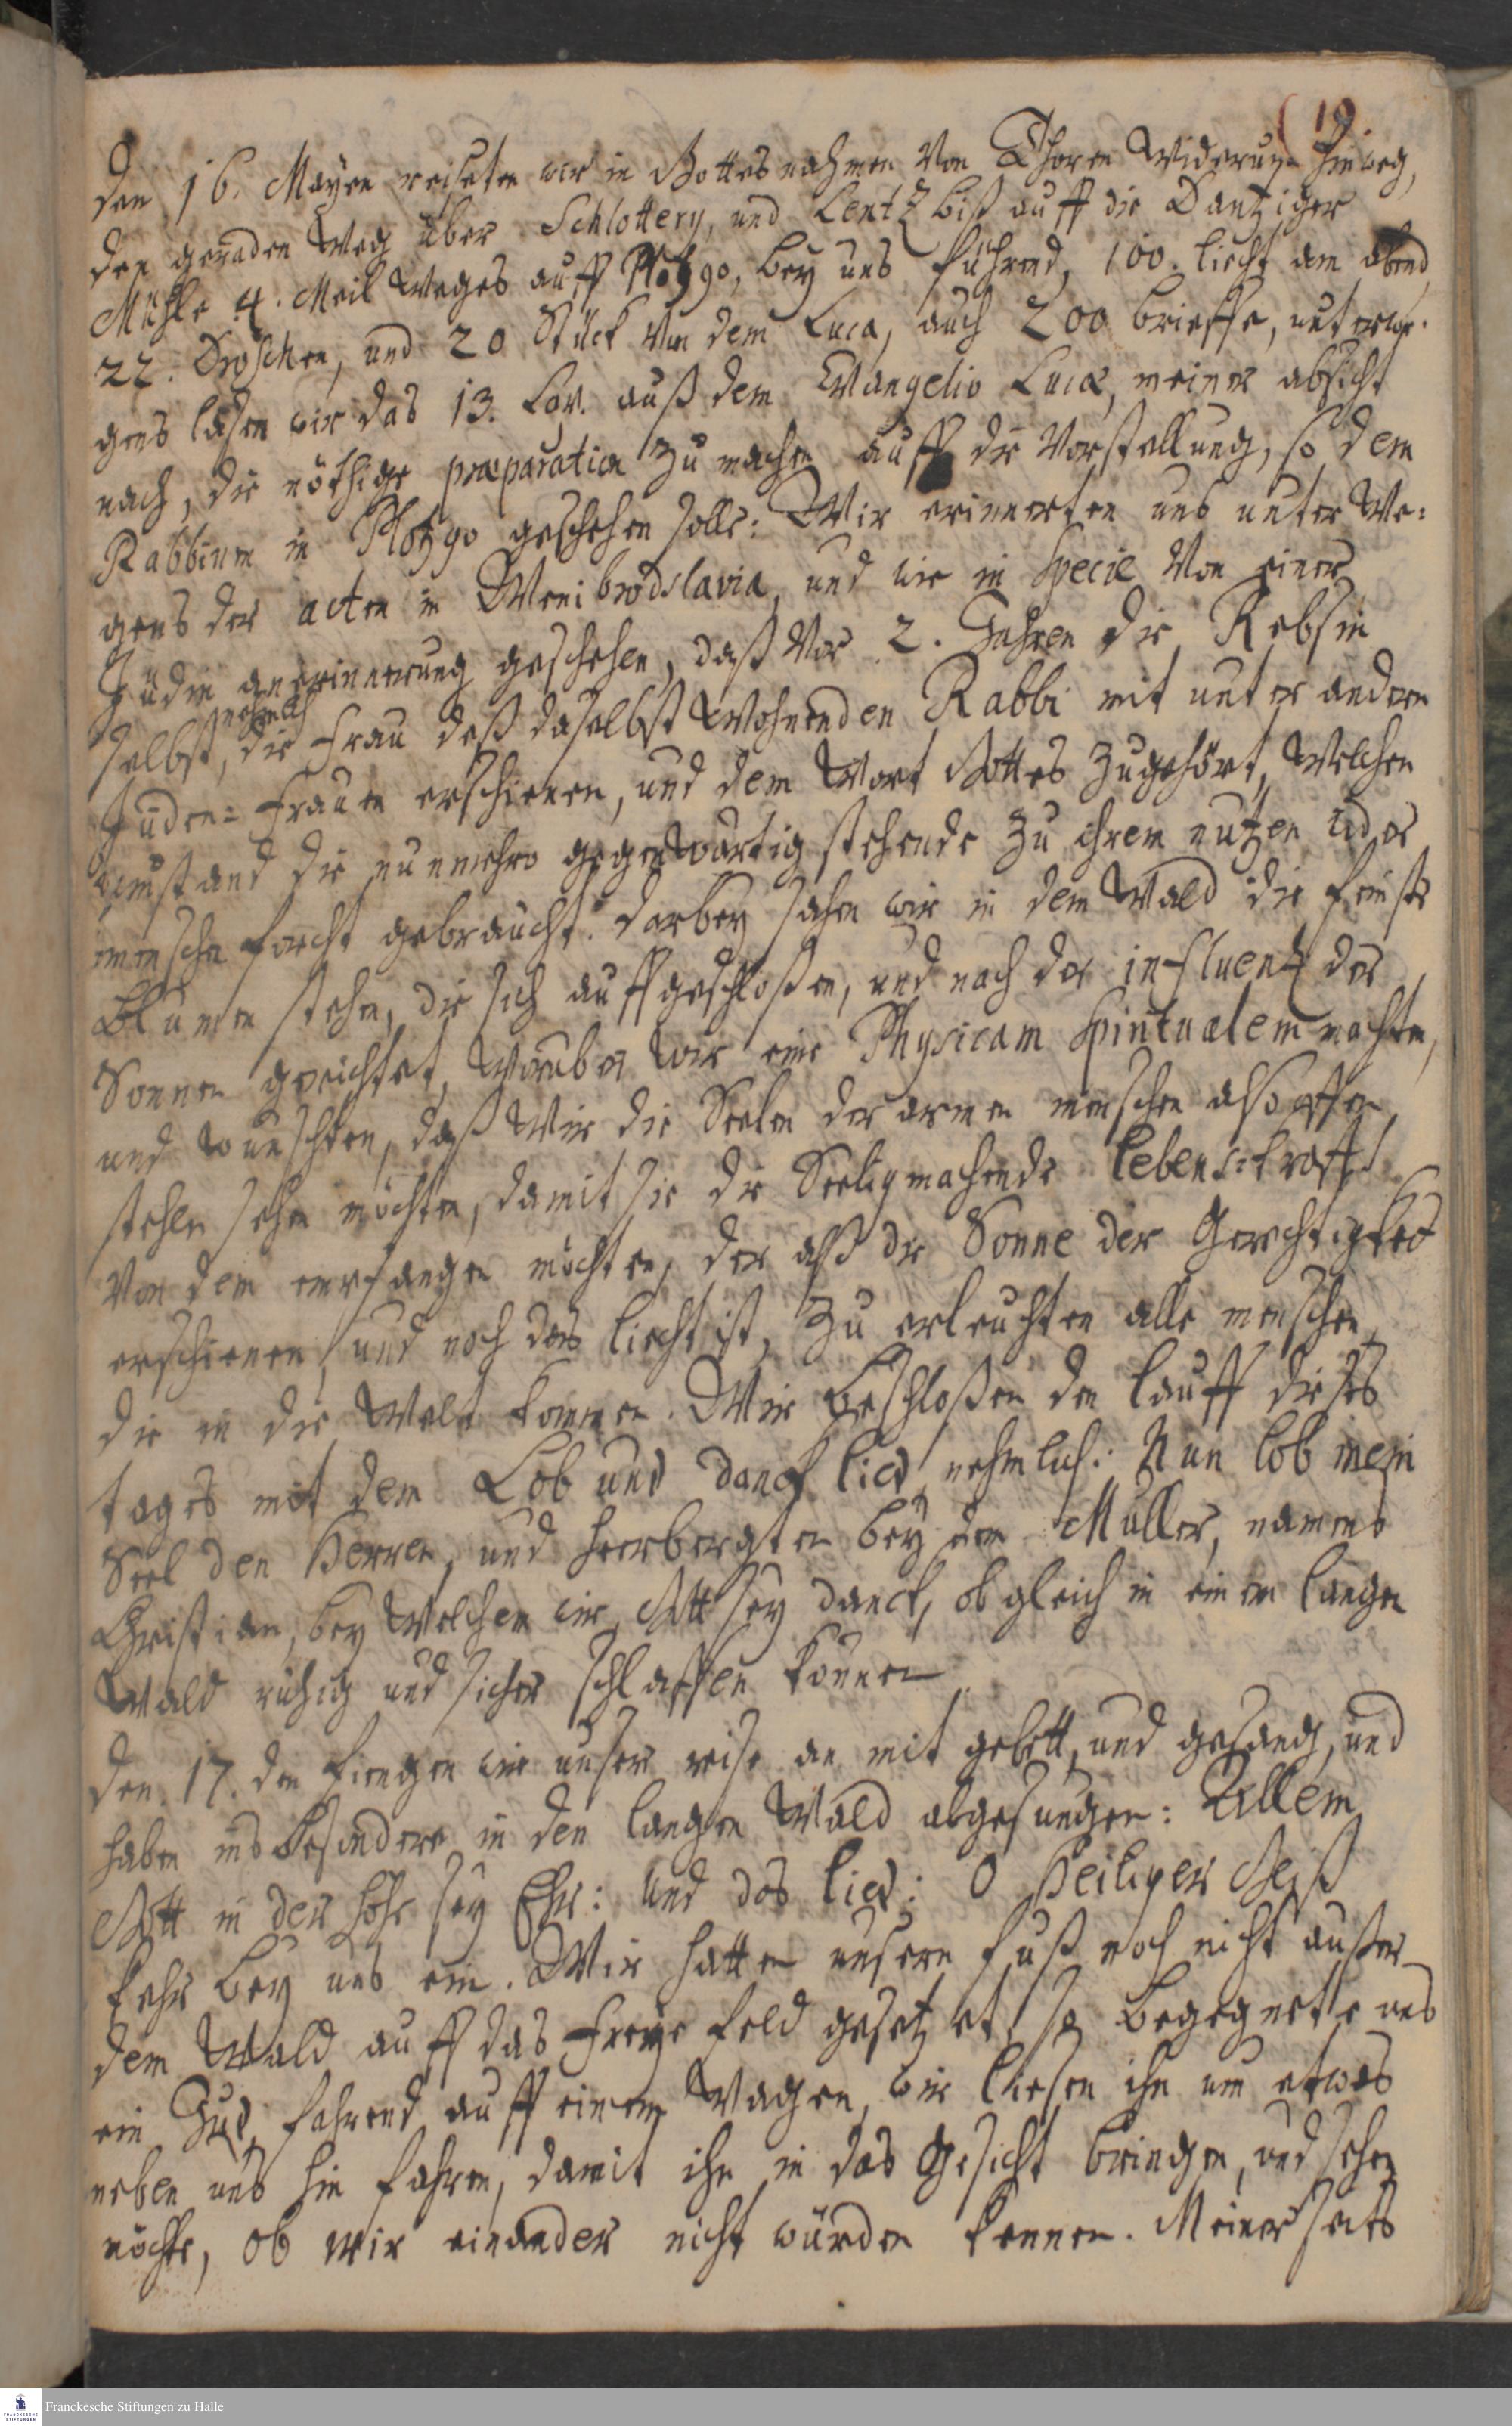 (19
Den 16. Mayen reiseten wir in Gottes nahmen von Thoren Widerum hinweg,
den geraden Weg über Schlottery, und Lentz biß auff die Dantziger
Mühle 4. Meil Weges auff Plotzgo, bey uns führend, 100. liecht am abend
22. Dröschen, und 20 Stück von dem Luca, auch 200 brieffe, unterwe-
gens lasen wir das 13. Cap. auß dem Evangelio Lucæ, meiner absicht
nach, die nöthige præparation zu machen auff die Vorstellung, so dem
Rabbinen in Plotzgo geschehen solle: Wir erinnerten uns unter We-
gens der acten in Wenibrodslavia, und wie in specie von einer
Jüdin anerinnerung geschehen, daß vor 2. Jahren die Rebsin
selbst, nehmlich die Frau deß daselbst Wohnenden Rabbi mit unter andern
Juden-Frauen erschienen, und dem Wort Gottes zugehört, Welchen
umstand die nunmehro gegenwärtig stehende zu ihrem nutzen wider
menschen forcht gebraucht. darbey sahen wir in dem Wald die feinste
Blumen stehen, die sich auffgeschloßen, und nach der influentz der
Sonnen gerichtet, Worüber wir eine Physicam Spiritualem machten,
und wünschten, daß Wir die Seelen der armen menschen also offen
stehen sehen möchten, damit sie die Seeligmachende lebens-krafft
Von dem empfangen möchten, der alß die Sonne der Gerechtigkeit
erschienen, und noch das liecht ist, zu erleuchten alle menschen,
die in die Welt kommen. Wir beschloßen den lauff dieses
tages mit dem Lob und danck lied, nehmlich: Nun lob mein
Seel den Herren, und herbergten bey dem Müller, namens
Christian, bey Welchem wir, Gott sey danck, obgleich in einem langen
Wald ruhig und sicher schlaffen können
Den 17. den fiengen wir unser reise an mit gebett, und gesang, und
haben insbesondere in den langen Wald abgesungen: Allein
Gott in der höhe sey Ehr: und das lied: O Heiliger Geist
kehr bey uns ein. Wir hatten unsern fuß noch nicht außer
dem Wald auff das freye feld gesetzet, so begegnete uns
ein Jud, fahrend auff einem Wagen, wir ließen ihn um etwas
neben uns hin fahren, damit ihn in das Gesicht bringen, und sehen
möchte, ob wir einander nicht würden kennen. Meiner seits
Franckesche Stiftungen zu Halle